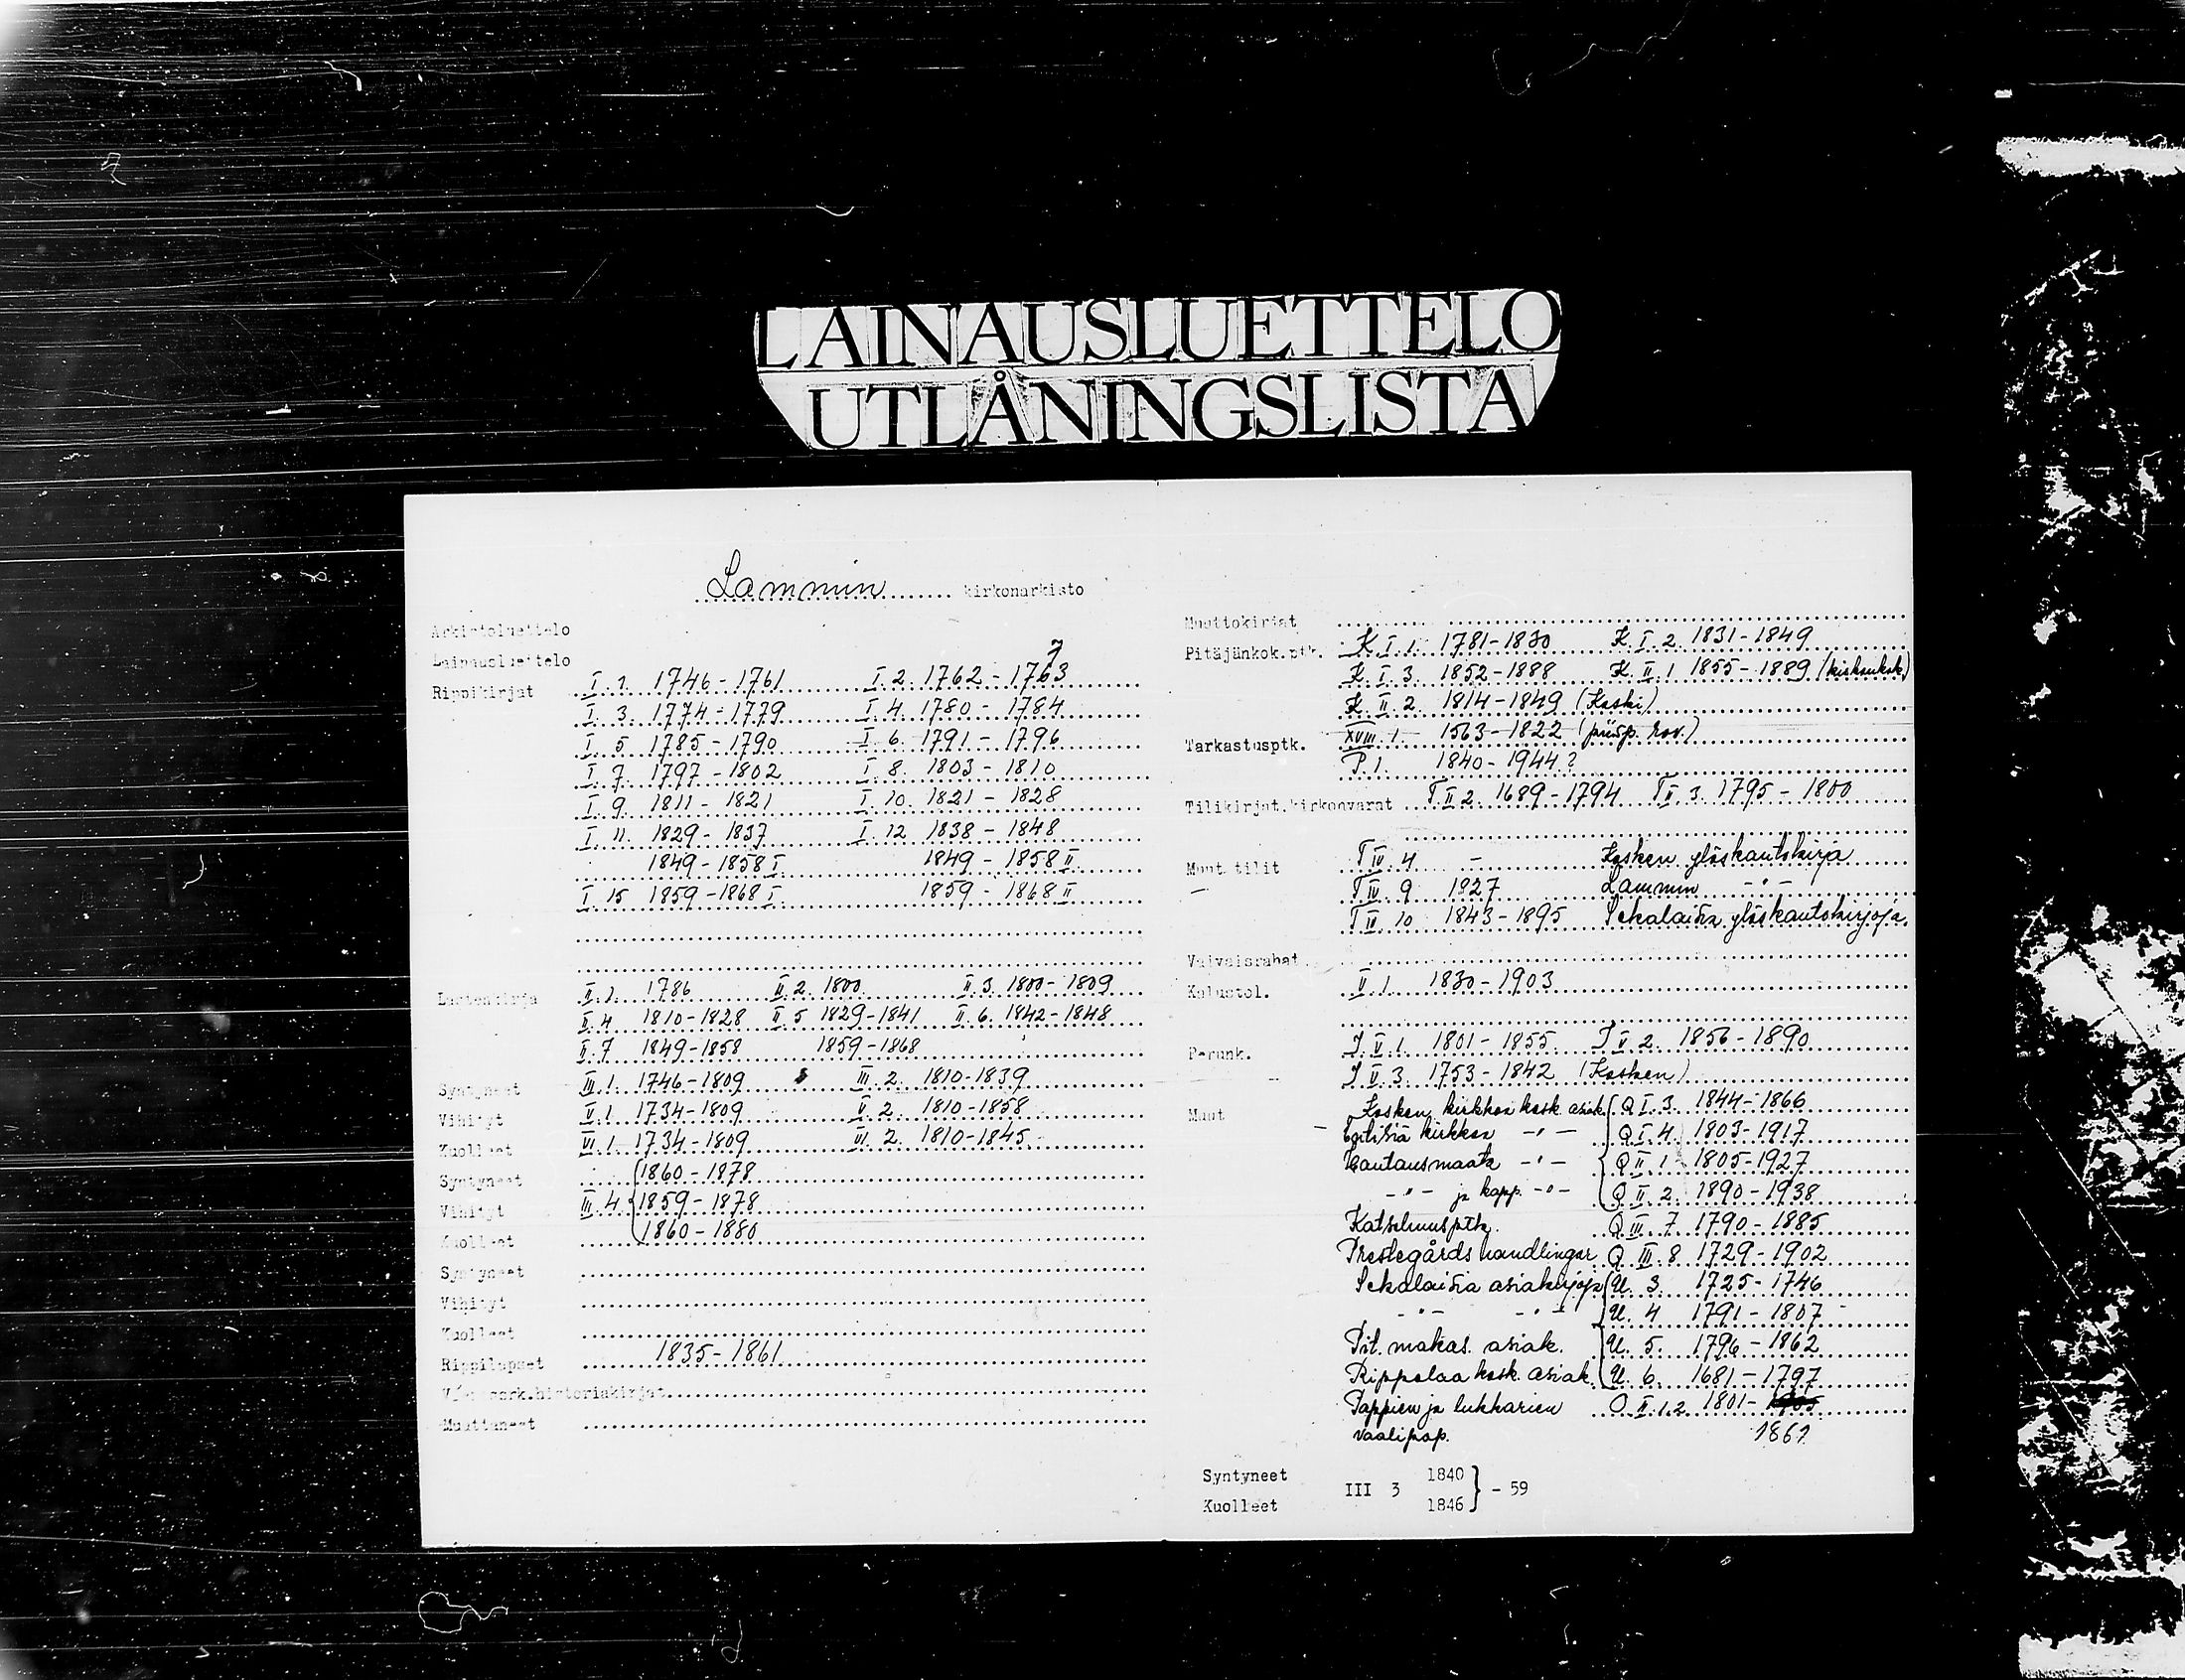 LAINAUSLUETTELO
UTLÅNINGSLISTA
Lammin kirkonarkisto
Arkistoluettelo
Lainausluettelo
7
Rippikirjat I. 1. 1746-1761 I. 2. 1762-1763
I. 3. 1774-1779 I. 4. 1780-1784
I. 5 1785-1790 I. 6. 1791-1796
I. 7. 1797-1802 I. 8. 1803-1810
I. 9. 1811-1821 I. 10. 1821-1828
I. 11. 1829-1837 I. 12 1838-1848
1849-1858 I 1849-1858 II
I. 15 1859-1868 I 1859-1868 II
Lastenkirja II. 1. 1786 II. 2. 1800 II. 3. 1800-1809
II. 4 1810-1828 II. 5 1829-1841 II. 6. 1842-1848
II. 7 1849-1858 1859-1868
Syntyneet III. 1. 1746-1809 III. 2. 1810-1839
Vihityt V. 1. 1734-1809 V. 2. 1810-1858
Kuolleet VI. 1. 1734-1809 VI. 2. 1810-1845
Syntyneet 1860-1878
Vihityt III. 4 1859-1878
Kuolleet 1860-1880
Syntyneet
Vihityt
Kuolleet
Rippilapset 1835-1861
Muuttaneet
Muuttokirjat
Pitäjänkok.ptk. K. I. 1. 1781-1830 K. I. 2. 1831-1849
K. I. 3. 1852-1888 K. II. 1 1855-1889
K. II. 2. 1814-1849 (Koski)
Tarkastusptk. XVIII. 1 1563-1822 (piisp. rov.)
P. 1. 1840-1944?
Tilikirjat.kirkonvarat T II 2. 1689-1794 T II. 3. 1795-1800
Muut tilit T IV 4 - Kosken yläskantokirja
T IV 9 1927 Lammin -"-
T IV 10 1843-1895 Sekalaisia yläskantokirjoja
Vaivaisrahat
Kalustol. V. 1. 1830-1903
Perunk. J V. 1. 1801-1855 J V. 2. 1856-1890
J V. 3. 1753-1842 (Kosken)
Muut Kosken kirkkoa kosk. asiak. Q I. 3. 1844-1866
kirkkoa -"- Q I. 4. 1803-1917
Hautausmaata -"- Q II. 1. 1805-1927
-"- ja kapp. -"- Q II. 2. 1890-1938
Katselmusptk. Q III. 7. 1790-1885
Prestegårds handlingar Q III. 8 1729-1902
Sekalaisia asiakirjoja U. 3. 1725-1746
-"- -"- U. 4 1791-1807
Pit. makas. asiak. U. 5. 1796-1862
Rippulaa kosk. asiak. U. 6. 1681-1797
Pappien ja lukkarien O II. 1.2 1801-
vaalipap. 1861
Syntyneet 1840
III 3 - 59
Kuolleet 1846